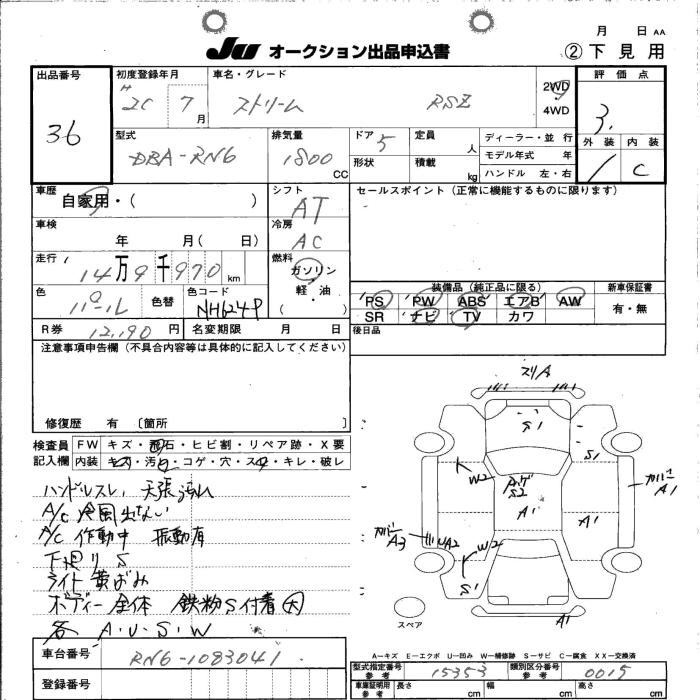 月 日 AA
JU オークション出品申込書
② 下見用
出品番号 36
初度登録年月 H 20 7 月
車名・グレード ストリーム RSZ
2WD
4WD
評価点 3.
外装 内装 C
型式 DBA-RN6
排気量 1800 CC
ドア 5
形状
定員 人
積載 kg
ディーラー・並行
モデル年式 年
ハンドル 左・右
車歴 自家用・( )
シフト AT
セールスポイント(正常に機能するものに限ります)
車検 年 月( 日)
冷房 AC
走行 14万9千970 km
燃料 ガソリン
軽・油
( )
色 パール 色替
色コード NH624P
装備品(純正品に限る)
PS PW ABS エアB AW
SR ナビ TV カワ
新車保証書
有・無
R券 12,190 円
名変期限 月 日
後日品
注意事項申告欄(不具合内容等は具体的に記入してください)
修復歴 有 〔箇所 〕
検査員 FW キズ・飛石・ヒビ割・リペア跡・X要
記入欄 内装 キズ・汚れ・コゲ・穴・スレ・キレ・破レ
ハンドルスレ、天張汚れ
A/C 冷風出ない
A/C 作動中 振動有
下廻り S
ライト黄ばみ
ボディー全体 鉄粉S付着
各 A・U・S・W
スリA
S1
S1
W2
アゲ
S2
A1
A1
カバー
A1
カバー
A3
UA2
W2
S1
A1
スペア
A-キズ E-エクボ U-凹み W-補修跡 S-サビ C-腐食 XX-交換済
車台番号 RN6-1083041
登録番号
型式指定番号 参考 15353
類別区分番号 参考 0015
車庫証明用 参考 長さ cm 幅 cm 高さ cm